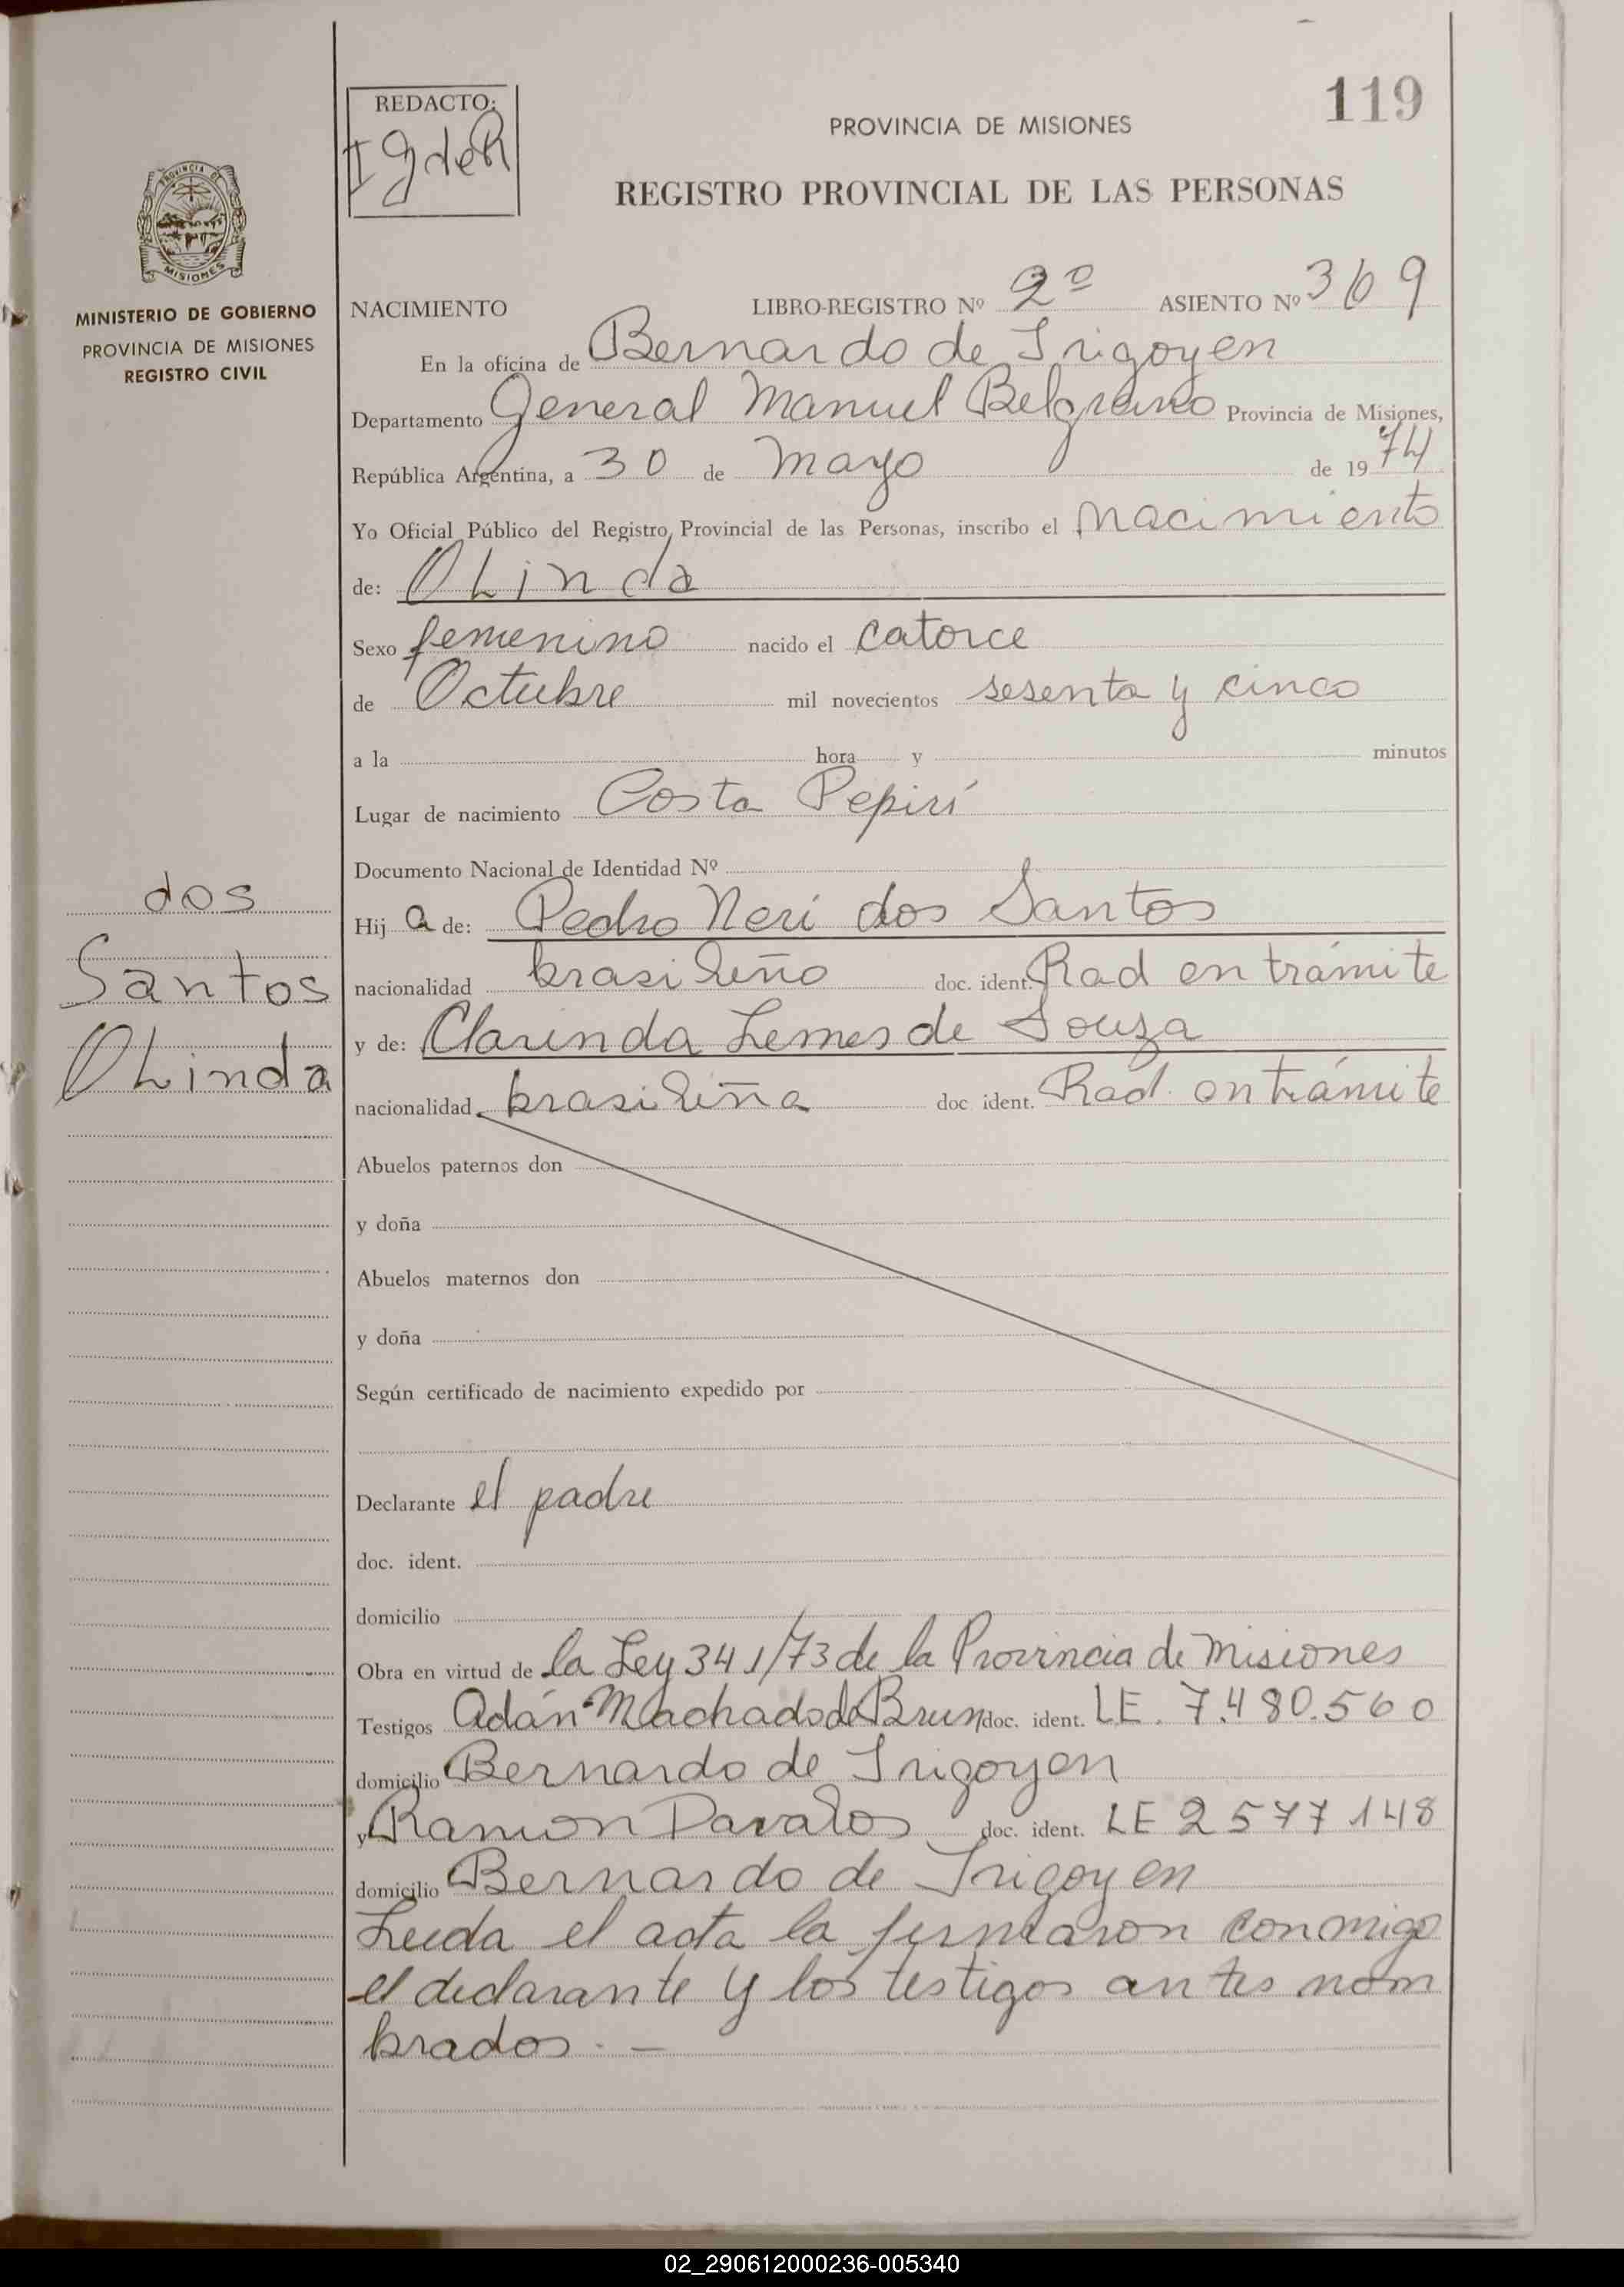 119
REDACTO:
IgdeR
PROVINCIA DE MISIONES
REGISTRO PROVINCIAL DE LAS PERSONAS
PROVINCIA DE
MISIONES
MINISTERIO DE GOBIERNO
PROVINCIA DE MISIONES
REGISTRO CIVIL
NACIMIENTO LIBRO-REGISTRO Nº 2º ASIENTO Nº 369
En la oficina de Bernardo de Irigoyen
Departamento General Manuel Belgrano Provincia de Misiones,
República Argentina, a 30 de Mayo de 1974
Yo Oficial Público del Registro Provincial de las Personas, inscribo el Nacimiento
de: OLinda
Sexo femenino nacido el catorce
de Octubre mil novecientos sesenta y cinco
a la hora y minutos
Lugar de nacimiento Costa Pepirí
Documento Nacional de Identidad Nº
dos
Santos
OLinda
Hij a de: Pedro Neri dos Santos
nacionalidad brasileño doc. ident. Rad en trámite
y de: Clarinda Lemes de Souza
nacionalidad brasileña doc ident. Rad. en trámite
Abuelos paternos don
y doña
Abuelos maternos don
y doña
Según certificado de nacimiento expedido por
Declarante el padre
doc. ident.
domicilio
Obra en virtud de la Ley 341/73 de la Provincia de Misiones
Testigos Adán Machado de Brun doc. ident. LE. 7.480.560
domicilio Bernardo de Irigoyen
y Ramon Davalos doc. ident. LE 2577148
domicilio Bernardo de Irigoyen
Leida el acta la firmaron conmigo
el declarante y los testigos antes nom
brados. —
02_290612000236-005340